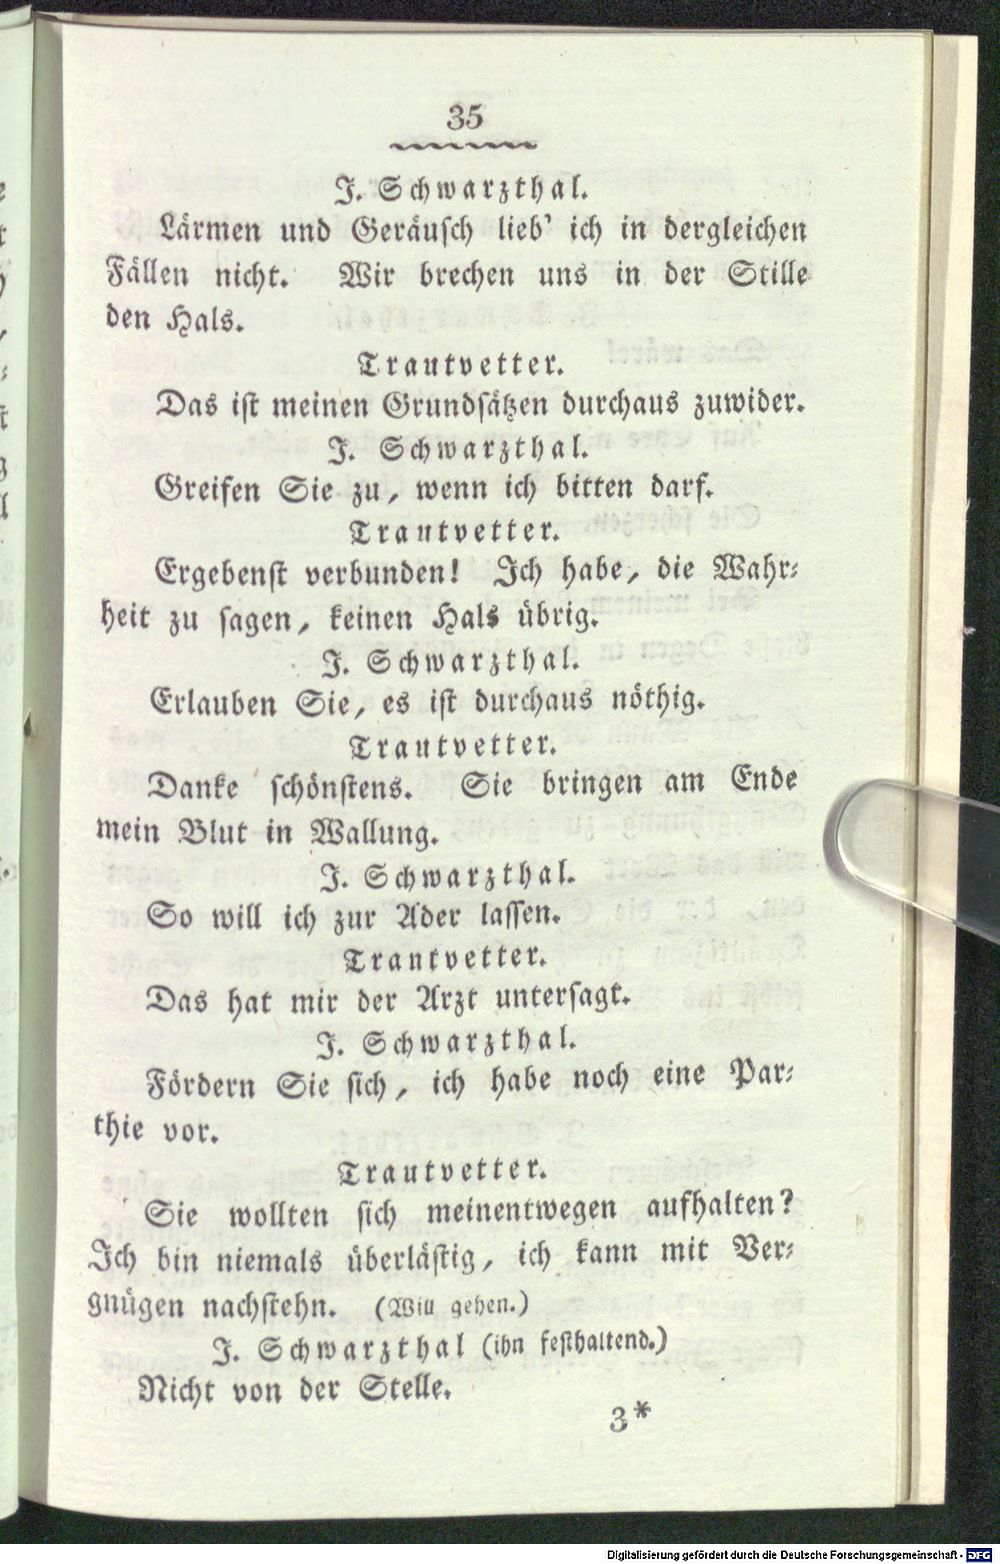 35
J. Schwarzthal.
Lärmen und Geräusch lieb' ich in dergleichen
Fällen nicht. Wir brechen uns in der Stille
den Hals.
Trautvetter.
Das ist meinen Grundsätzen durchaus zuwider.
J. Schwarzthal.
Greifen Sie zu, wenn ich bitten darf.
Trautvetter.
Ergebenst verbunden! Ich habe, die Wahr⸗
heit zu sagen, keinen Hals übrig.
J. Schwarzthal.
Erlauben Sie, es ist durchaus nöthig.
Trautvetter.
Danke schönstens. Sie bringen am Ende
mein Blut in Wallung.
J. Schwarzthal.
So will ich zur Ader lassen.
Trautvetter.
Das hat mir der Arzt untersagt.
J. Schwarzthal.
Fördern Sie sich, ich habe noch eine Par⸗
thie vor.
Trautvetter.
Sie wollten sich meinentwegen aufhalten?
Ich bin niemals überlästig, ich kann mit Ver⸗
gnügen nachstehn. (Will gehen.)
J. Schwarzthal (ihn festhaltend.)
Nicht von der Stelle.
3*
Digitalisierung gefördert durch die Deutsche Forschungsgemeinschaft - DFG